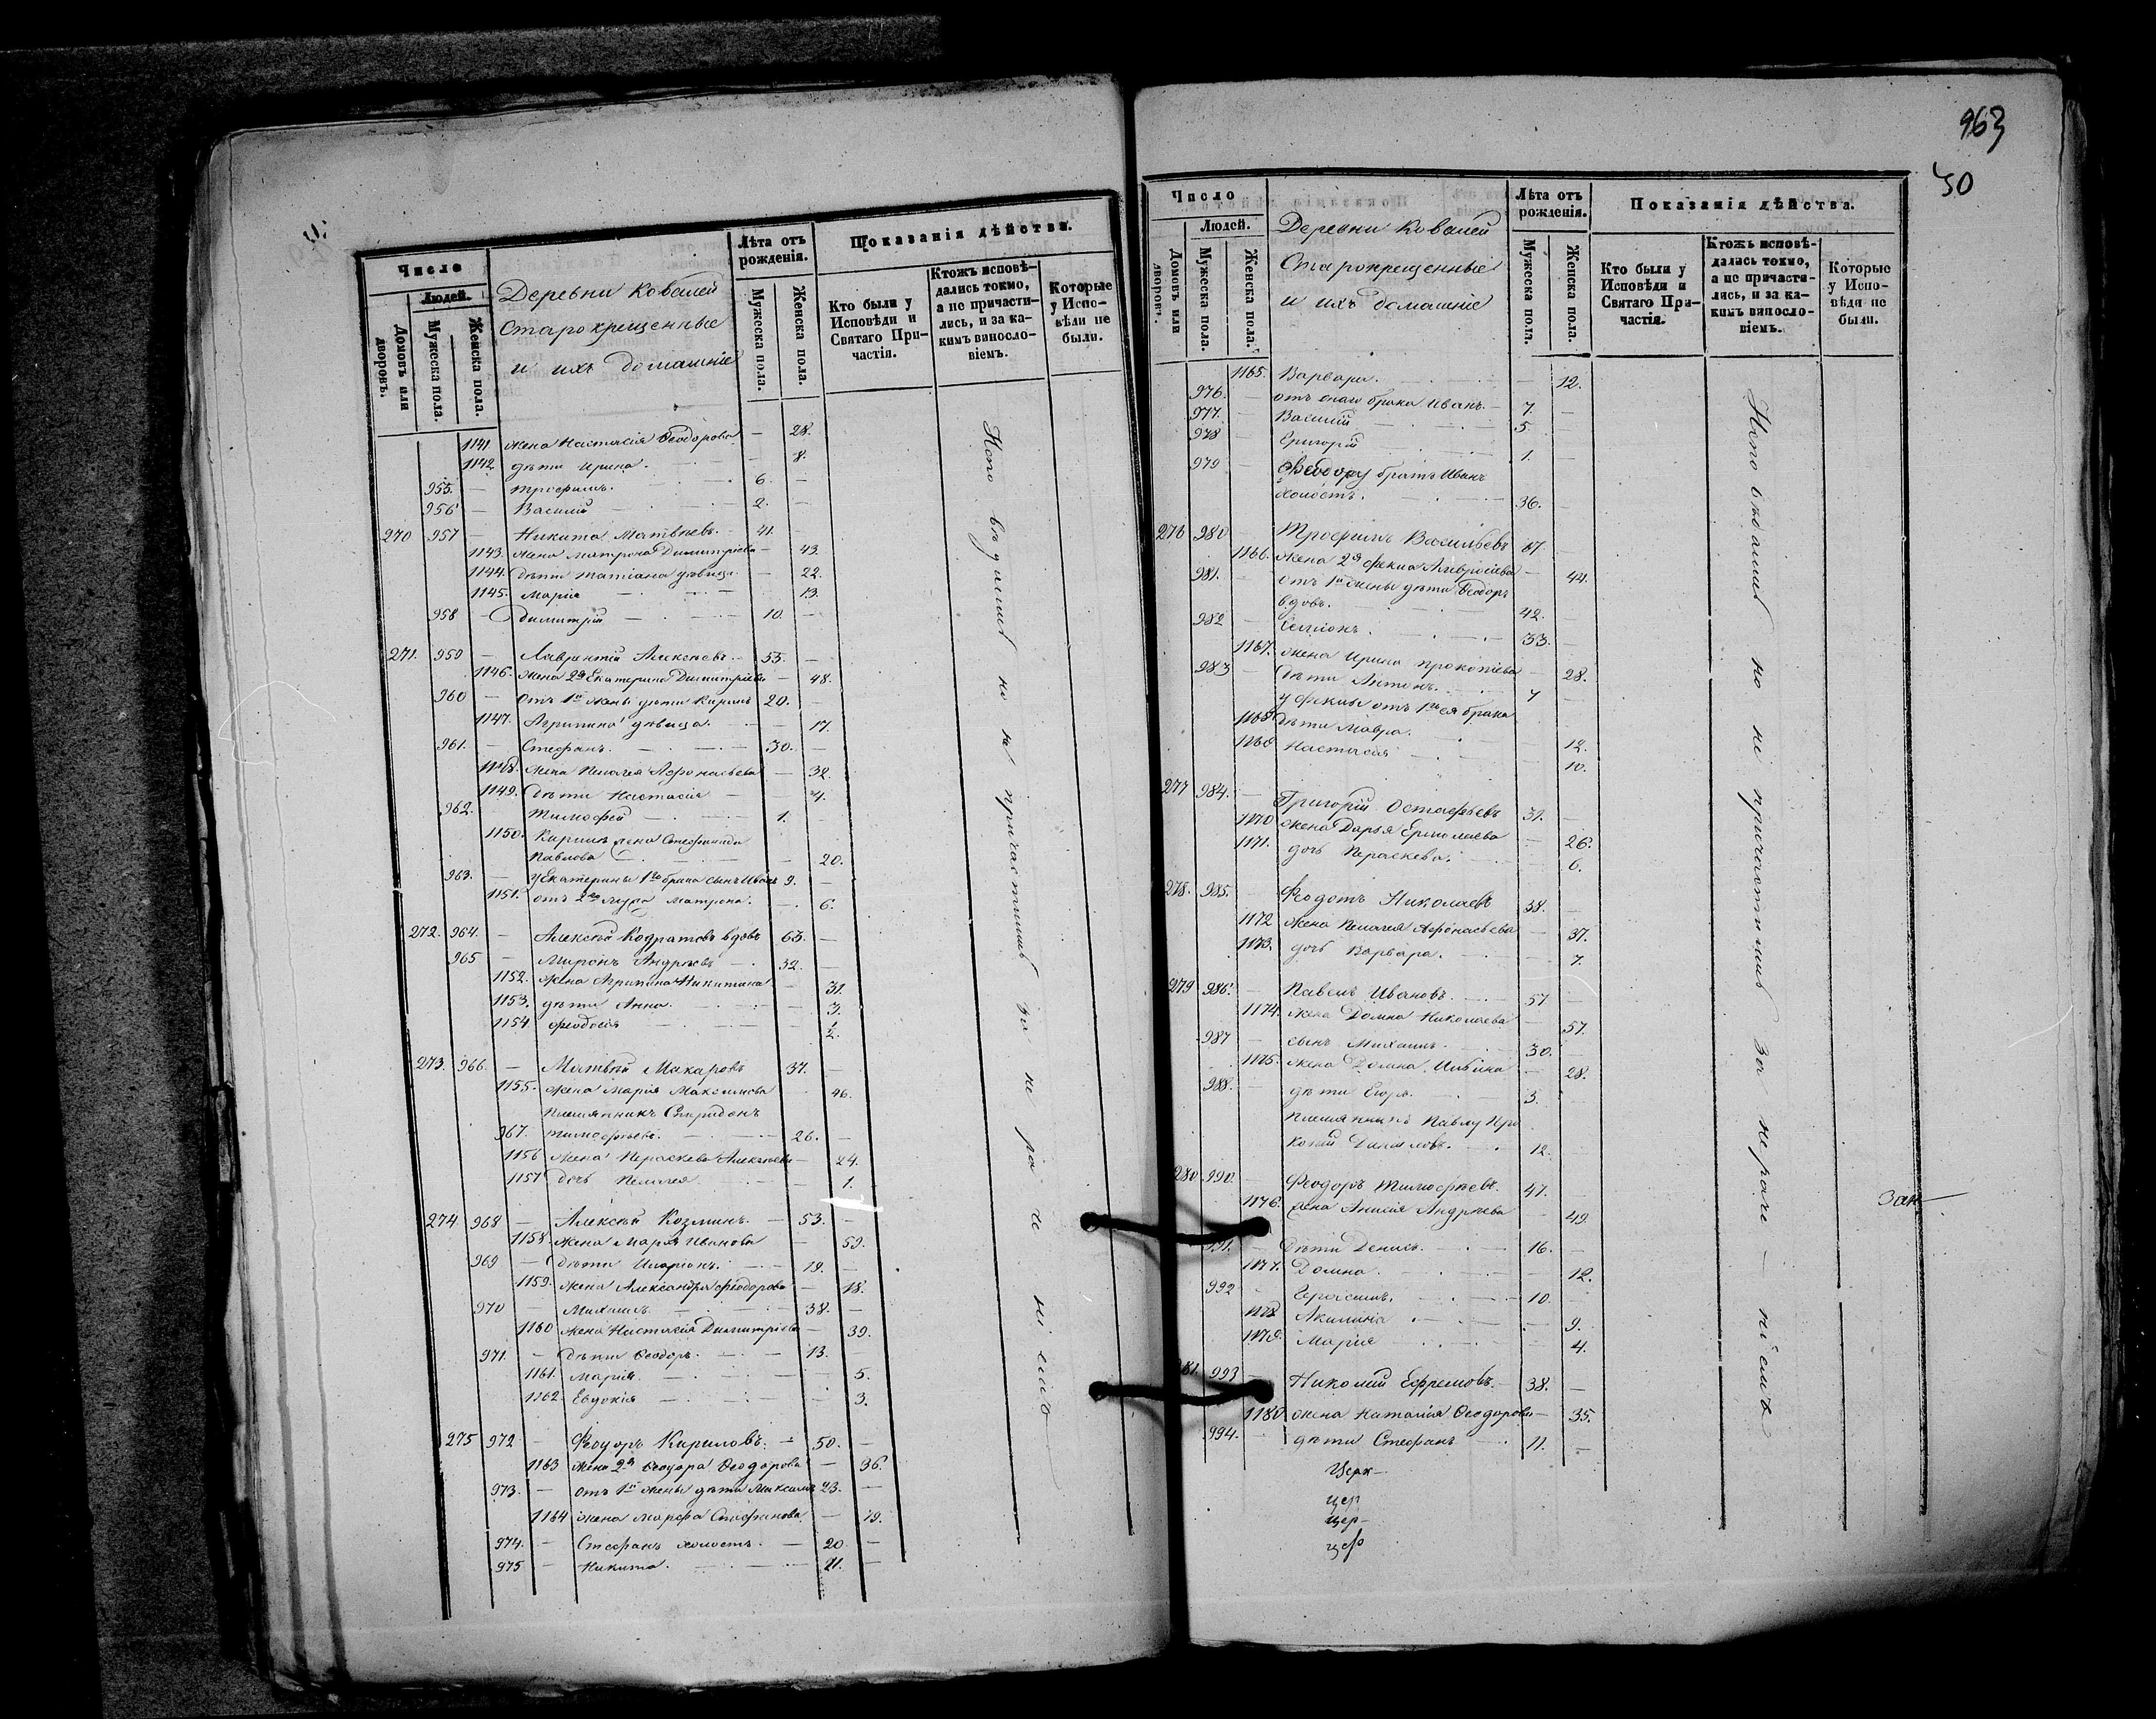 Число
Людей.
Домовъ или дворовъ.
Мужеска пола.
Женска пола.
Деревни Ковалей
Старокрещенные
и ихъ домашніе
Лѣта отъ рожденія.
Мужеска пола.
Женска пола.
Показанія дѣйства.
Кто были у Исповѣди и Святаго Причастія.
Ктожъ исповѣдались токмо, а не причастились, и за какимъ винословіемъ.
Которые у Исповѣди не были.
1141 жена Настасія Ѳеодорова — 28.
1142 дѣти Ирина. — 8.
955. — Трофимъ. 6. —
956 — Василій 2. —
270 957 — Никита Матвѣевъ. 41. —
1143. жена Матрона Димитріева — 43.
1144. Дѣти Татіана дѣвица. — 22.
1145. Марія — 13.
958 — Димитрій 10. —
271. 959 — Лаврентій Алексѣевъ. 55. —
1146. жена 2я Екатерина Димитріева — 48.
960 — отъ 1й жены дѣти Кирилъ 20. —
1147. Агрипина дѣвица. — 17.
961. — Стефанъ. 30. —
1148. жена Пелагея Афонасьева — 32.
1149. Дѣти Настасія — 4.
962. Тимофей 1. —
1150. Кирила жена Стефанида
Павлова — 20.
963. — у Екатерины 1го брака сынъ Иванъ 9. —
1151. отъ 2го мужа Матрона. — 6.
272. 964. — Алексѣй Кодратовъ вдовъ 63. —
965 — Миронъ Андреевъ 32. —
1152. жена Агрипина Никитина — 31.
1153. дѣти Анна. — 3.
1154 Феодосія — 1/2.
273. 966. — Матвѣй Макаровъ 37. —
1155. жена Марія Максимова 46.
Племянникъ Спиридонъ
967. Тимофѣевъ. 26. —
1156 жена Параскева Алексѣева — 24.
1157 дочь Пелагея — 1.
274. 968 — Алексѣй Козминъ. 53. —
1158. жена Марія Иванова — 59.
969 — Дѣти Иларіонъ. 19. —
1159. жена Александра Феодорова — 18.
970 — Михаилъ 38. —
1160 жена Настасія Димитріева — 39.
971. — Дѣти Ѳеодоръ. 13. —
1161. Марія. — 5.
1162. Евдокія — 3.
275 972 — Феодоръ Кириловъ. 50. —
1163 жена 2я Ѳеодора Ѳеодорова — 36.
973. — отъ 1й жены дѣти Максимъ 23. —
1164 жена Марфа Стефанова — 19.
974. — Стефанъ холостъ. 20 —
975 — Никита. 21. —
963
50
Число
Людей.
Домовъ или дворовъ.
Мужеска пола.
Женска пола.
Деревни Ковалей
Старокрещенные
и ихъ домашніе
Лѣта отъ рожденія.
Мужеска пола.
Женска пола.
Показанія дѣйства.
Кто были у Исповѣди и Святаго Причастія.
Ктожъ исповѣдались токмо, а не причастились, и за какимъ винословіемъ.
Которые у Исповѣди не были.
1165. Варвара. — 12.
976. — отъ онаго брака Иванъ. 7. —
977. — Василій 5. —
978 — Григорій 1. —
979 — Феодору братъ Иванъ
холостъ. 36. —
276 980 — Трофимъ Васильевъ 67. —
1166. жена 2я Фекла — 44.
981. — отъ 1й жены дѣти Ѳеодоръ
вдовъ. 42. —
982 — 33. —
1167. жена Ирина Прокопіева — 28.
983 — Дѣти Антонъ. 7 —
у Феклы отъ 1го ея брака
1168. Дѣти Мавра. 12.
1169. Настасія — 10.
277 984. — Григорій Остафьевъ 31. —
1170 жена Дарья Ермолаева — 26.
1171. дочь Параскева. 6.
278. 985. — Феодотъ Николаевъ 38. —
1172 жена Пелагея Афонасьева — 37.
1173. дочь Варвара. — 7.
279 986. — Павелъ Ивановъ. 57 —
1174. жена Домна Николаева — 57.
987 — сынъ Михаилъ. 30. —
1175. жена Домна Ильина — 28.
988. — дѣти Егоръ. 3. —
Племянникъ Павлу Про
копій Даниловъ. 12. —
280 990. — Феодоръ Тимофѣевъ. 47. —
1176. жена Анисія Андреева — 49.
991. — Дѣти Денисъ. 16. —
1177. Домна. — 12.
992 — Герасимъ. 10. —
1178 Акилина — 9.
1179. Марія — 4.
281. 993 — Николай Ефремовъ. 38. —
1180 жена Наталія Ѳеодорова — 35.
994. — дѣти Стефанъ 11. —